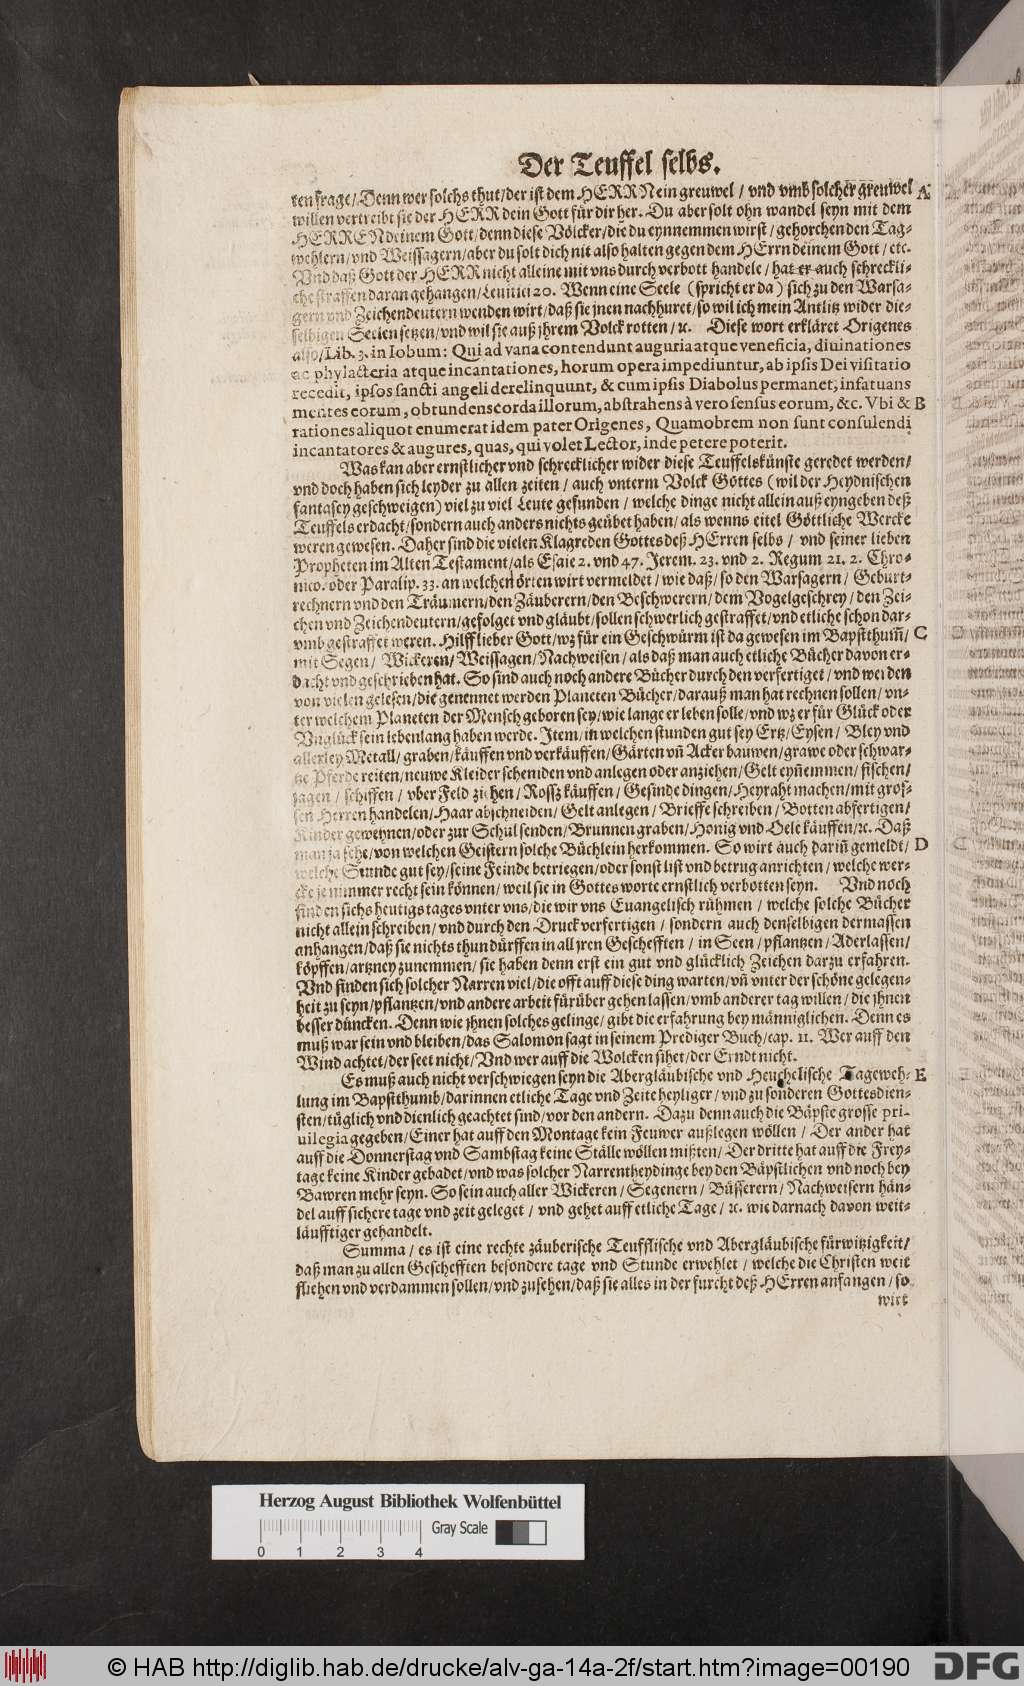 Der Teuffel selbs.
ten frage / Denn wer solchs thut / der ist dem HERRN ein greuwel / vnd vmb solcher greuwel A
willen vertreibt sie der HERR dein Gott für dir her. Du aber solt ohn wandel seyn mit dem
HERREN deinem Gott / denn diese Völcker / die du eynnemmen wirst / gehorchen den Tag-
wehlern / vnd Weissagern / aber du solt dich nit also halten gegen dem HErrn deinem Gott / etc.
Vnd daß Gott der HERR nicht alleine mit vns durch verbott handele / hat er auch schreckli-
che straffen daran gehangen / Leuitici 20. Wenn eine Seele (spricht er da) sich zu den Warsa-
gern vnd Zeichendeutern wenden wirt / daß sie jnen nachhuret / so wil ich mein Antlitz wider die-
selbigen Seelen setzen / vnd wil sie auß jhrem Volck rotten / ꝛc. Diese wort erkläret Origenes
also / Lib. 3. in Iobum: Qui ad vana contendunt auguria atque veneficia, diuinationes
ac phylacteria atque incantationes, horum opera impediuntur, ab ipsis Dei visitatio
recedit, ipsos sancti angeli derelinquunt, & cum ipsis Diabolus permanet, infatuans
mentes eorum, obtundens corda illorum, abstrahens à vero sensus eorum, &c. Vbi & B
rationes aliquot enumerat idem pater Origenes, Quamobrem non sunt consulendi
incantatores & augures, quas, qui volet Lector, inde petere poterit.
Was kan aber ernstlicher vnd schrecklicher wider diese Teuffelskünste geredet werden /
vnd doch haben sich leyder zu allen zeiten / auch vnterm Volck Gottes (wil der Heydnischen
fantasey geschweigen) viel zu viel Leute gefunden / welche dinge nicht allein auß eyngeben deß
Teuffels erdacht / sondern auch anders nichts geübet haben / als wenns eitel Göttliche Wercke
weren gewesen. Daher sind die vielen Klagreden Gottes deß HErren selbs / vnd seiner lieben
Propheten im Alten Testament / als Esaie 2. vnd 47. Jerem. 23. vnd 2. Regum 21. 2. Chro-
nico. oder Paralip. 33. an welchen örten wirt vermeldet / wie daß / so den Warsagern / Geburt-
rechnern vnd den Träumern / den Zäuberern / den Beschwerern / dem Vogelgeschrey / den Zei-
chen vnd Zeichendeutern / gefolget vnd gläubt / sollen schwerlich gestraffet / vnd etliche schon dar-
vmb gestraffet weren. Hilff lieber Gott / wz für ein Geschwürm ist da gewesen im Bapstthum̃ / C
mit Segen / Wickeren / Weissagen / Nachweisen / als daß man auch etliche Bücher davon er-
dacht vnd geschrieben hat. So sind auch noch andere Bücher durch den verfertiget / vnd werden
von vielen gelesen / die genennet werden Planeten Bücher / darauß man hat rechnen sollen / vn-
ter welchem Planeten der Mensch geboren sey / wie lange er leben solle / vnd wz er für Glück oder
Vnglück sein lebenlang haben werde. Item / in welchen stunden gut sey Ertz / Eysen / Bley vnd
allerley Metall / graben / käuffen vnd verkäuffen / Gärten vñ Acker bauwen / grawe oder schwar-
tze Pferde reiten / neuwe Kleider schneiden vnd anlegen oder anziehen / Gelt eyñemmen / fischen /
jagen / schiffen / vber Feld ziehen / Rossz käuffen / Gesinde dingen / Heyraht machen / mit gros-
sen Herren handelen / Haar abschneiden / Gelt anlegen / Brieffe schreiben / Botten abfertigen /
Kinder gewehnen / oder zur Schul senden / Brunnen graben / Honig vnd Oele käuffen / ꝛc. Daß
man ja sehe / von welchen Geistern solche Büchlein herkommen. So wirt auch dariñ gemeldt / D
welche Stunde gut sey / seine Feinde betriegen / oder sonst list vnd betrug anrichten / welche wer-
cke je nimmer recht sein können / weil sie in Gottes worte ernstlich verbotten seyn. Vnd noch
finden sichs heutigs tages vnter vns / die wir vns Euangelisch rühmen / welche solche Bücher
nicht allein schreiben / vnd durch den Druck verfertigen / sondern auch denselbigen dermassen
anhangen / daß sie nichts thun dürffen in all jren Geschefften / in Seen / pflantzen / Aderlassen /
köpffen / artzney zunemmen / sie haben denn erst ein gut vnd glücklich Zeichen darzu erfahren.
Vnd finden sich solcher Narren viel / die offt auff diese ding warten / vñ vnter der schöne gelegen-
heit zu seyn / pflantzen / vnd andere arbeit fürüber gehen lassen / vmb anderer tag willen / die jhnen
besser düncken. Denn wie jhnen solches gelinge / gibt die erfahrung bey männiglichen. Denn es
muß war sein vnd bleiben / das Salomon sagt in seinem Prediger Buch / cap. 11. Wer auff den
Wind achtet / der seet nicht / Vnd wer auff die Wolcken sihet / der Erndt nicht.
Es muß auch nicht verschwiegen seyn die Abergläubische vnd Heuchelische Tageweh- E
lung im Bapstthumb / darinnen etliche Tage vnd Zeite heyliger / vnd zu sonderen Gottesdien-
sten / tüglich vnd dienlich geachtet sind / vor den andern. Dazu denn auch die Bäpste grosse pri-
uilegia gegeben / Einer hat auff den Montage kein Feuwer außlegen wöllen / Der ander hat
auff die Donnerstag vnd Sambstag keine Ställe wöllen mißten / Der dritte hat auff die Frey-
tage keine Kinder gebadet / vnd was solcher Narrentheydinge bey den Bäpstlichen vnd noch bey
Bawren mehr seyn. So sein auch aller Wickeren / Segenern / Büsserern / Nachweisern hän-
del auff sichere tage vnd zeit geleget / vnd gehet auff etliche Tage / ꝛc. wie darnach davon weit-
läufftiger gehandelt.
Summa / es ist eine rechte zäuberische Teufflische vnd Abergläubische fürwitzigkeit /
daß man zu allen Geschefften besondere tage vnd Stunde erwehlet / welche die Christen weit
fliehen vnd verdammen sollen / vnd zusehen / daß sie alles in der furcht deß HErren anfangen / so
wirt
Herzog August Bibliothek Wolfenbüttel
Gray Scale
0 1 2 3 4
© HAB http://diglib.hab.de/drucke/alv-ga-14a-2f/start.htm?image=00190
DFG